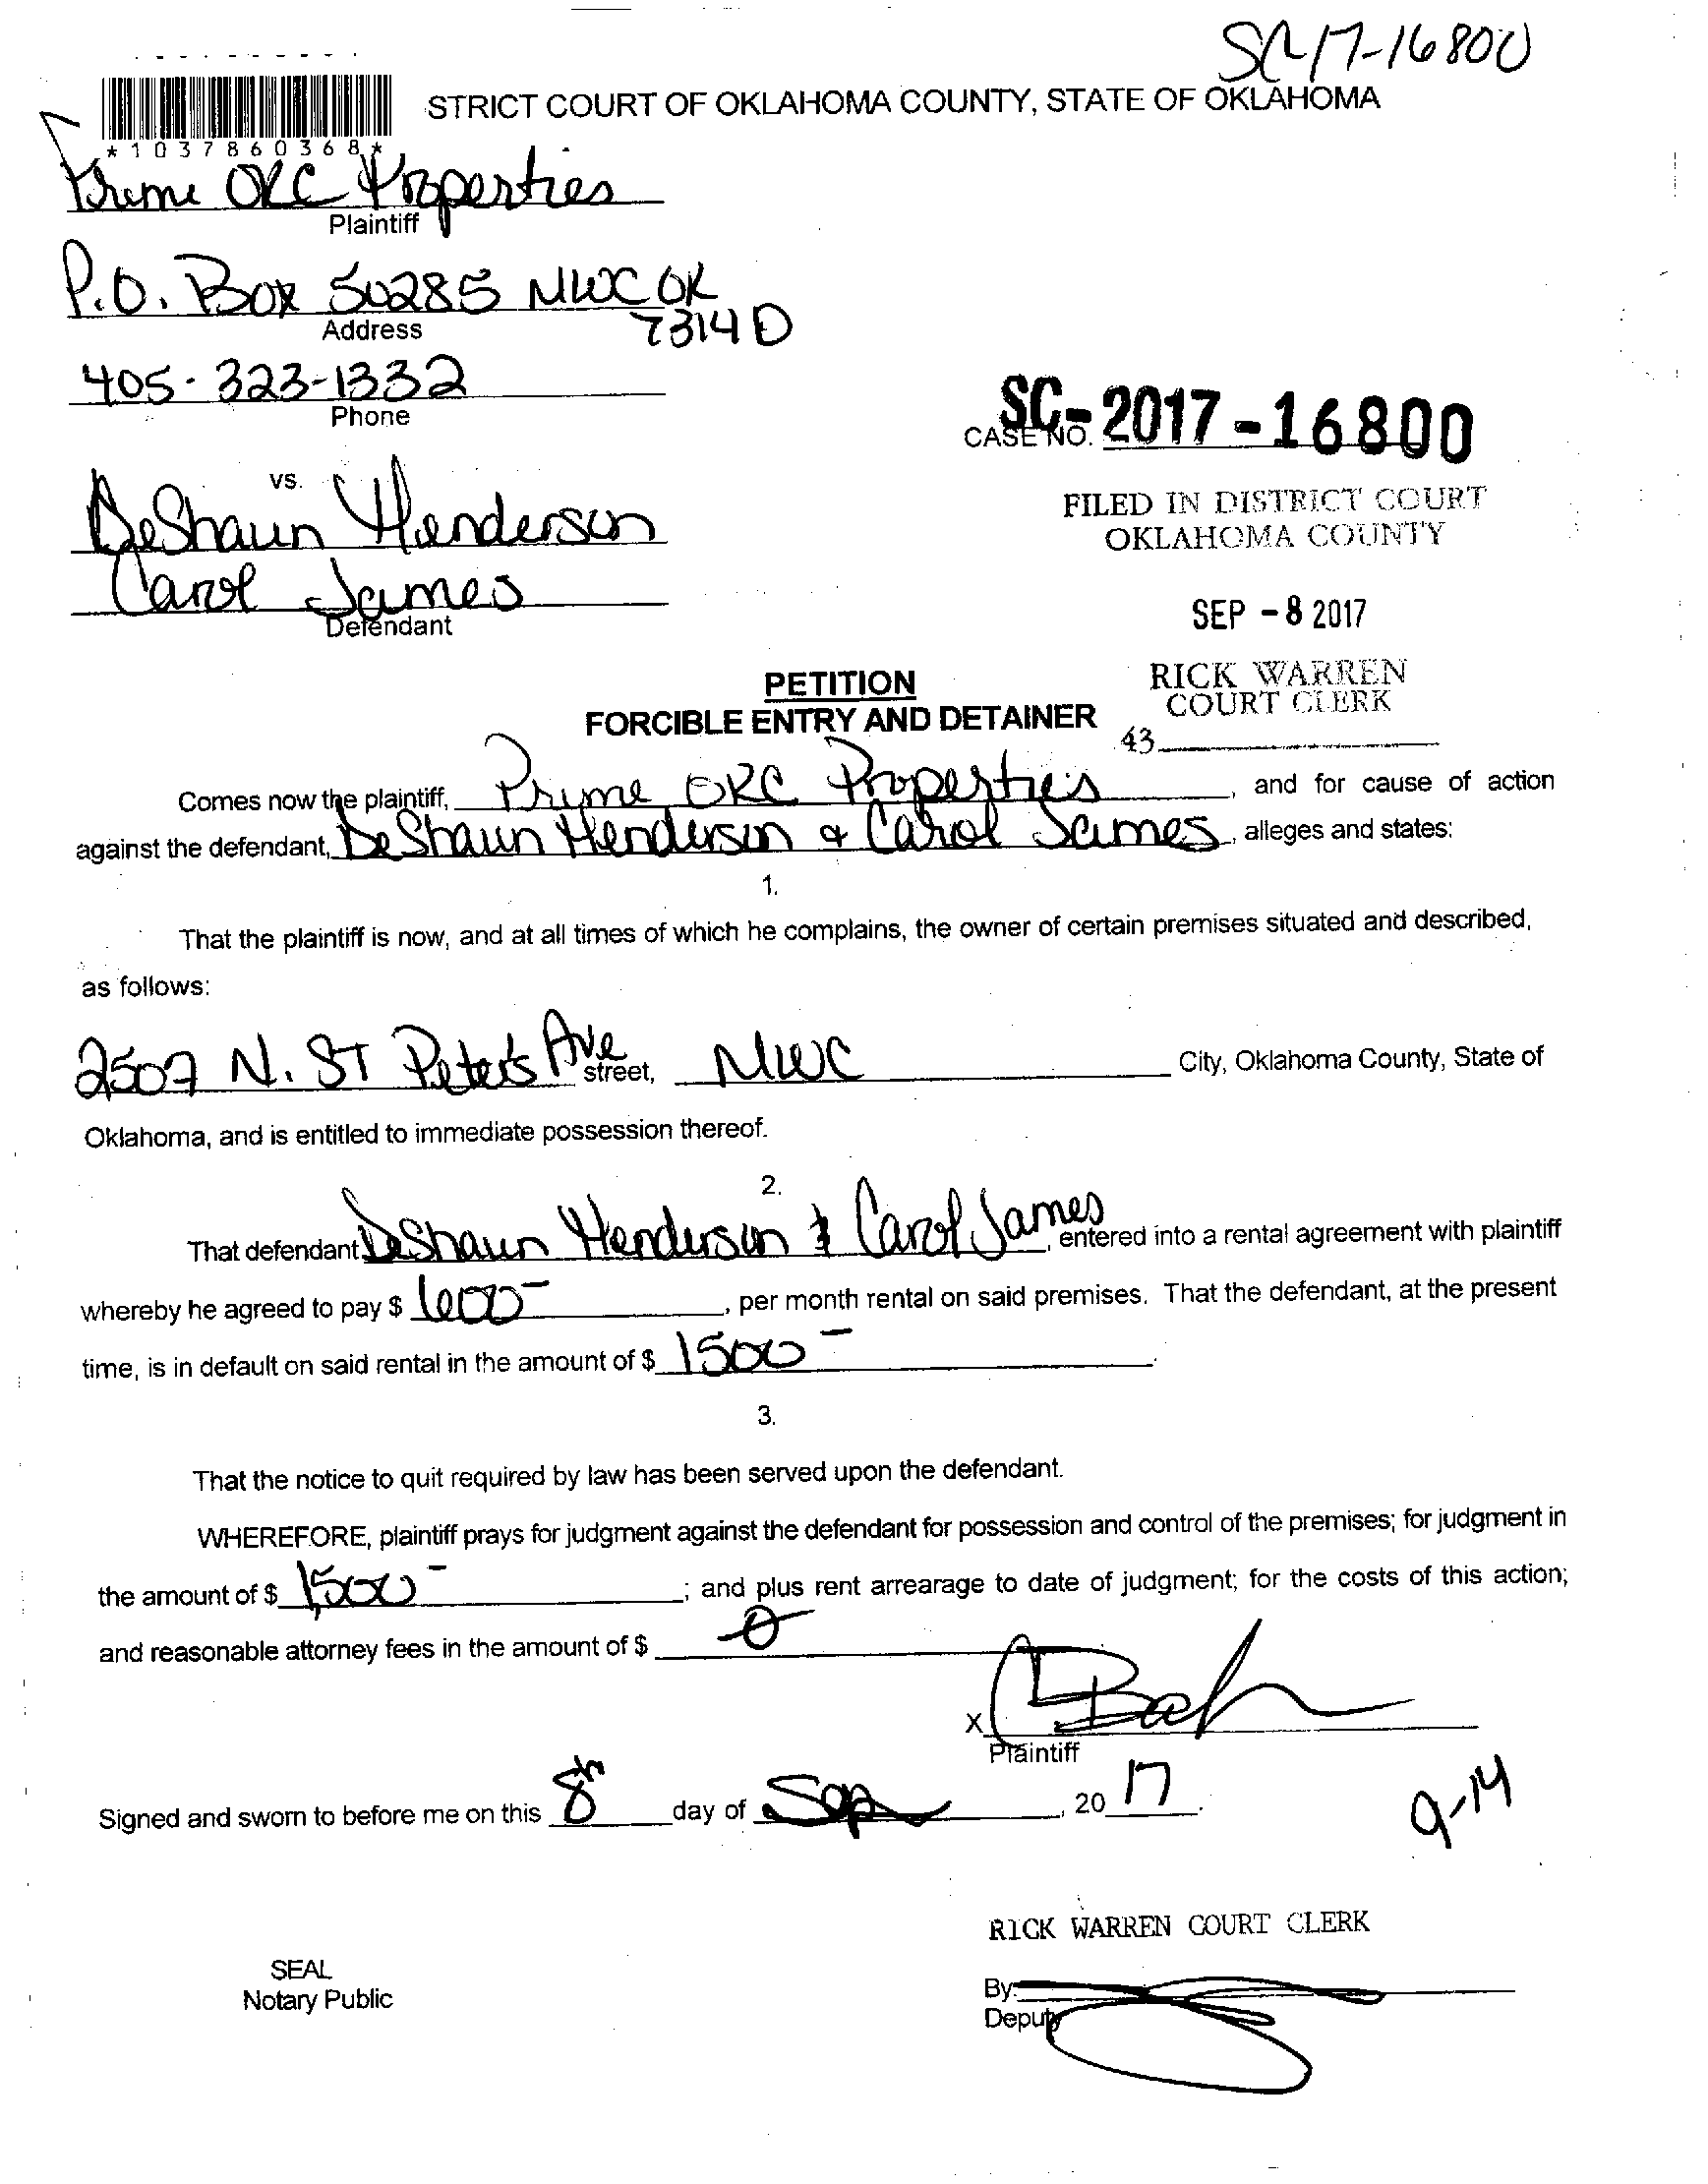 SC-17-16800
STRICT COURT OF OKLAHOMA COUNTY, STATE OF OKLAHOMA
*1037860368*
Prime OKC Properties
Plaintiff
P.O. Box 50285 MWC OK
73140
Address
405-323-1332
Phone
SC-2017-16800
CASE NO.
vs.
FILED IN DISTRICT COURT
OKLAHOMA COUNTY
DeShaun Henderson
Carol James
Defendant
SEP - 8 2017
RICK WARREN
COURT CLERK
43
PETITION
FORCIBLE ENTRY AND DETAINER
Comes now the plaintiff, Prime OKC Properties, and for cause of action
against the defendant, DeShaun Henderson & Carol James, alleges and states:
1.
That the plaintiff is now, and at all times of which he complains, the owner of certain premises situated and described,
as follows:
2507 N. ST Peter's Ave street, MWC City, Oklahoma County, State of
Oklahoma, and is entitled to immediate possession thereof.
2.
That defendant DeShaun Henderson & Carol James, entered into a rental agreement with plaintiff
whereby he agreed to pay $ 600-, per month rental on said premises. That the defendant, at the present
time, is in default on said rental in the amount of $ 1500-
3.
That the notice to quit required by law has been served upon the defendant.
WHEREFORE, plaintiff prays for judgment against the defendant for possession and control of the premises; for judgment in
the amount of $ 1,500-; and plus rent arrearage to date of judgment; for the costs of this action;
and reasonable attorney fees in the amount of $ 0
X
Plaintiff
Signed and sworn to before me on this 8th day of Sep, 20 17.
9-14
RICK WARREN COURT CLERK
SEAL
Notary Public
By
Deputy